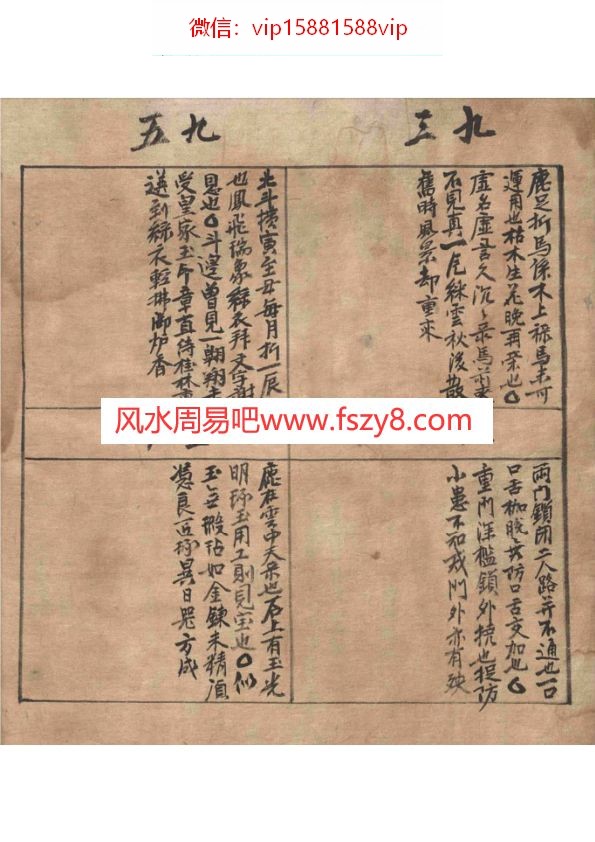 微信：vip15881588vip
九三
鹿足折馬係木上祿馬未可
運用也枯木生花晚再榮也〇
虛名虛言久沉沉祿馬前來
不見真一片綵雲秋後散
舊時風景却重來
九五
北斗橫寅至丑每月折一辰
也鳳飛瑞象綠衣拜文字謝
恩也〇斗邊曾見一朝翔
受皇家玉印章直待桂林
選到綠衣輕拂御炉香
风水周易吧www.fszy8.com
兩門鎖閉二人路并不通也一口
口舌枷脫災防口舌交加也〇
重門深檻鎖外撓也提防
小患不和戎門外亦有殃
鹿在雲中天祿也石上有玉光
明琢玉用工則見宝也〇似
玉無瑕玷如金鍊未精須
憑良匠琢異日器方成